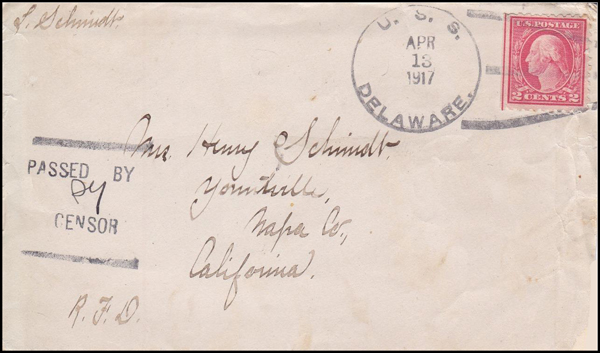 F. Schmidt
U. S. S.
APR
13
1917
DELAWARE.
U.S. POSTAGE
2 CENTS 2
Mrs. Henry Schmidt.
Yountville,
Napa Co.,
California.
PASSED BY
CENSOR
R. F. D.